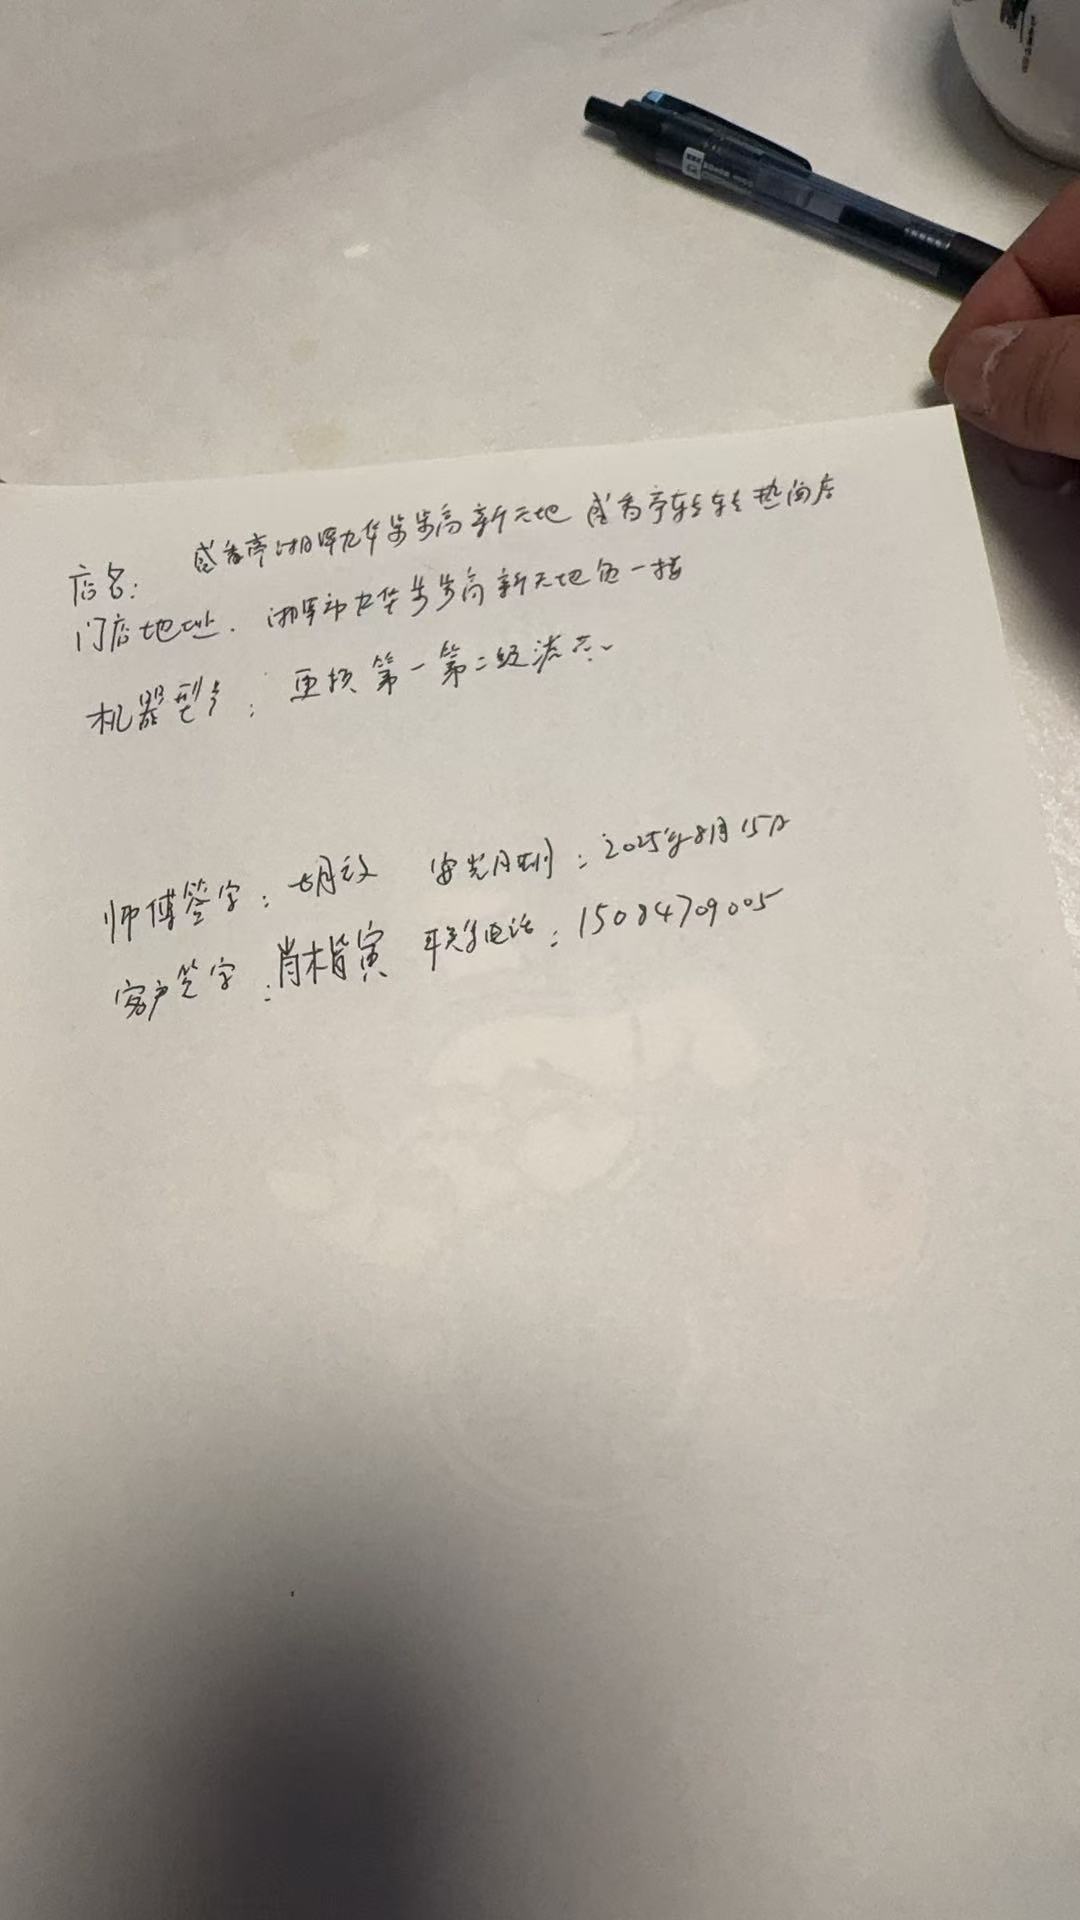 店名: 盛香亭湘潭九华步步高新天地 盛香亭转转热卤店
门店地址. 湘潭市九华步步高新天地负一楼
机器型号: 更换第一第二级滤芯
师傅签字: 胡 安装日期: 2025年8月15日
客户签字: 肖楷寅 联系电话: 15084709005